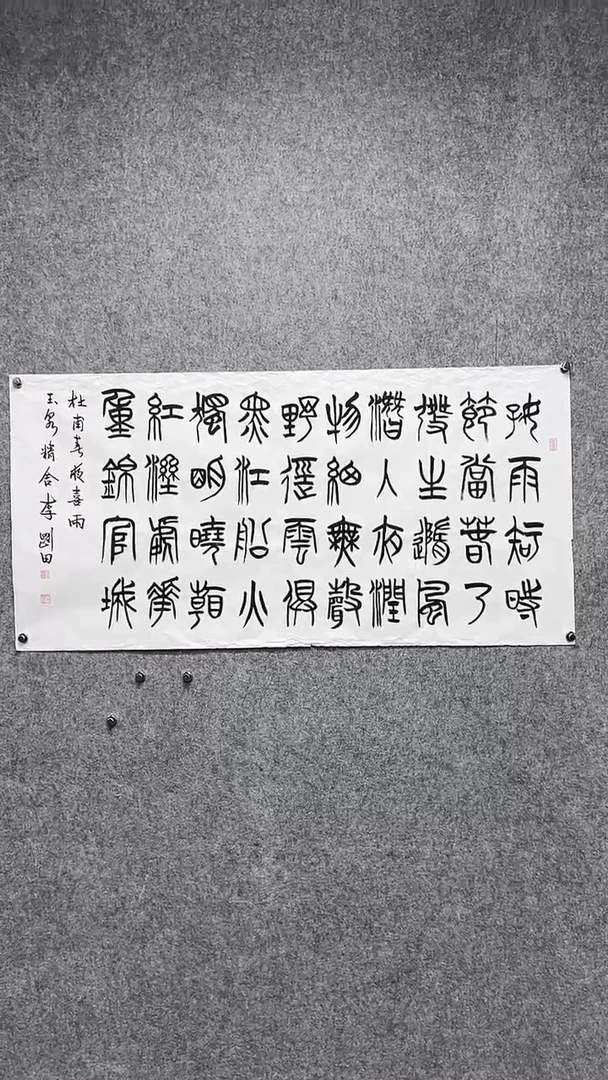 好雨知時
節當春乃
發生隨風
潛入夜潤
物細無聲
野徑雲俱
黑江船火
獨明曉看
紅溼處花
重錦官城
杜甫春夜喜雨
玉泉精舍李剛田